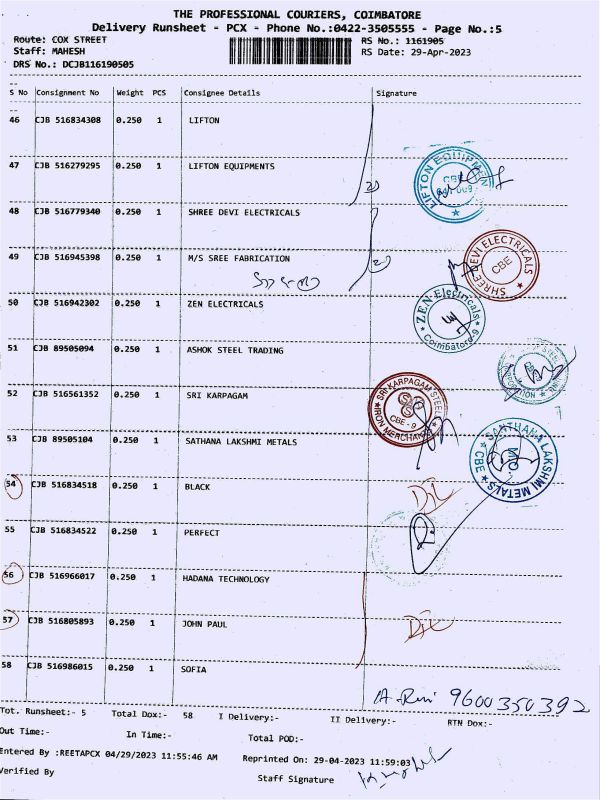 THE PROFESSIONAL COURIERS, COIMBATORE
Delivery Runsheet - PCX - Phone No.:0422-3505555 - Page No.:5
Route: COX STREET RS No.: 1161905
Staff: MAHESH RS Date: 29-Apr-2023
DRS No.: DCJB116190505
S No Consignment No Weight PCS Consignee Details Signature
46 CJB 516834308 0.250 1 LIFTON
47 CJB 516279295 0.250 1 LIFTON EQUIPMENTS
LIFTON EQUIPMEN
48 CJB 516779340 0.250 1 SHREE DEVI ELECTRICALS
49 CJB 516945398 0.250 1 M/S SREE FABRICATION
SHREE DEVI ELECTRICALS
CBE
50 CJB 516942302 0.250 1 ZEN ELECTRICALS
ZEN Electricals
Coimbatore-9
51 CJB 89505094 0.250 1 ASHOK STEEL TRADING
52 CJB 516561352 0.250 1 SRI KARPAGAM
SRI KARPAGAM STEELS
IRON MERCHANT
CBE - 9
53 CJB 89505104 0.250 1 SATHANA LAKSHMI METALS
SANTHANA LAKSHMI METALS
CBE
54 CJB 516834518 0.250 1 BLACK
55 CJB 516834522 0.250 1 PERFECT
56 CJB 516966017 0.250 1 HADANA TECHNOLOGY
57 CJB 516805893 0.250 1 JOHN PAUL
58 CJB 516986015 0.250 1 SOFIA
9600350392
Tot. Runsheet:- 5 Total Dox:- 58 I Delivery:- II Delivery:- RTN Dox:-
Out Time:- In Time:- Total POD:-
Entered By :REETAPCX 04/29/2023 11:55:46 AM Reprinted On: 29-04-2023 11:59:03
Verified By Staff Signature